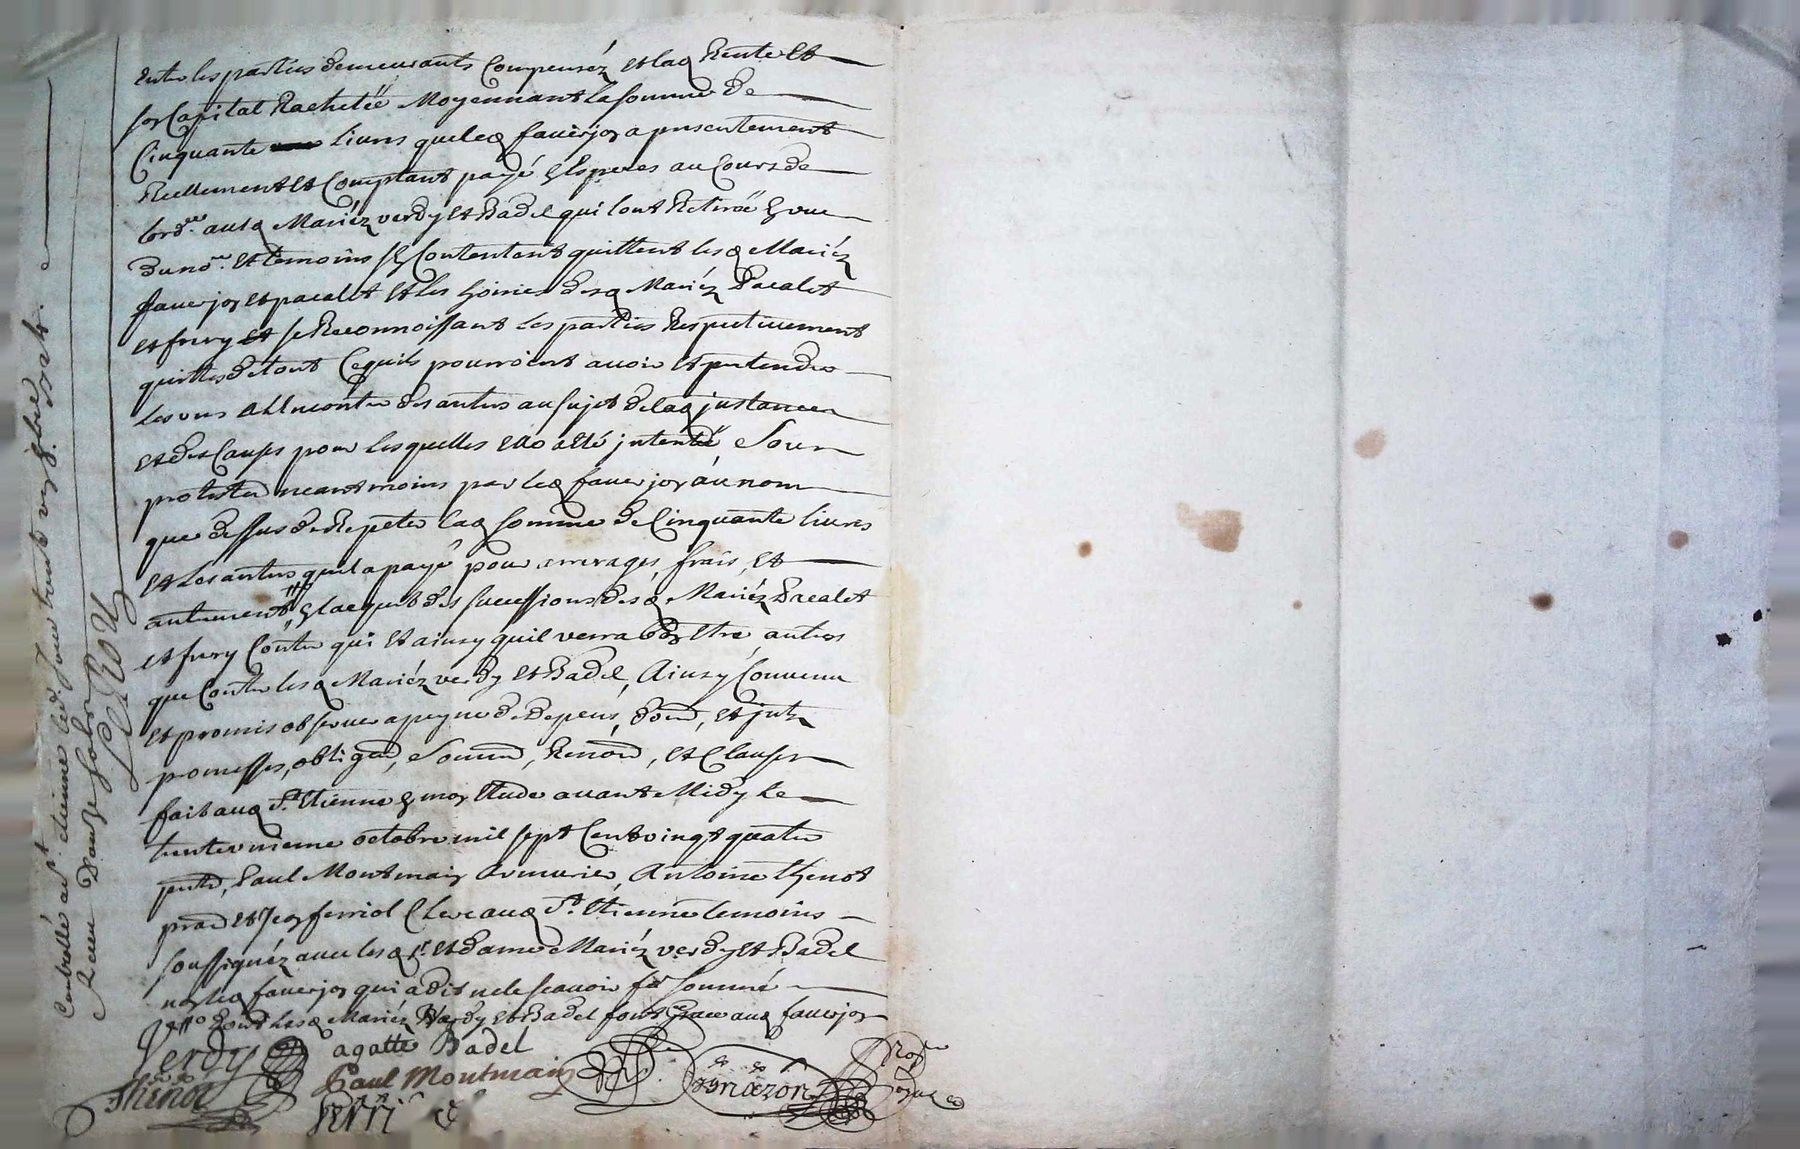 Entre les parties demeurants Compenséz Et laq Rente Et
son Capital Racheteé Moyennant la somme de
Cinquante livres que leq faverjon a presentement
Reellement et Comptant payé en Especes au Cours de
lord.ce ausq Mariéz verdy et Badel qui l'ont Retireé en vue
du no.re et temoins s'en Contentent quittent lesq Mariéz
faverjon et pacalet et les hoiries desq Mariéz Pacalet
et fury et se Reconnoissant les parties Respectivement
quittes de tout Ce quils pourroient avoir et pretendre
les uns a L'encontre des autres au sujet de laq jnstance
et des Causes pour lesquelles elle a eté jntenteé, Sous
protester neantmoins par leq faverjon au nom
que dessus de Repeter laq somme de Cinquante livres
et les autres quil a payé pour arrerages, frais, et
autrement en lacquit des successions desq Mariéz Pacalet
et fury Contre qui et ainsy quil verra bon Etre autres
que Contre lesq Mariéz verdy et Badel, Ainsy Convenu
et promis observer a peyne de depens, dom, et jntz
promesses, obligaon, Soumon, Renon, et Clauses
fait auq St. Etienne en mon Etude avant Midy le
trente unieme octobre mil sept Cent vingt quatre
pnts, Paul Montmain Armurier, Antoine thenot
pran et Jean ferriol Clerc auq St. Etienne temoins
soussignéz avec lesq Sr. et dame Mariéz verdy et Badel
non leq faverjon qui a dit ne le scavoir fre sommé
dont lesq Mariéz Verdy et Badel font Grace auq faverjon
Verdy agatte Badel
Paul Montmain
thenot
ferriol
Controllé a St. etienne led. jour trente un 8bre 1724.
Receu Douze sols
LeRoy